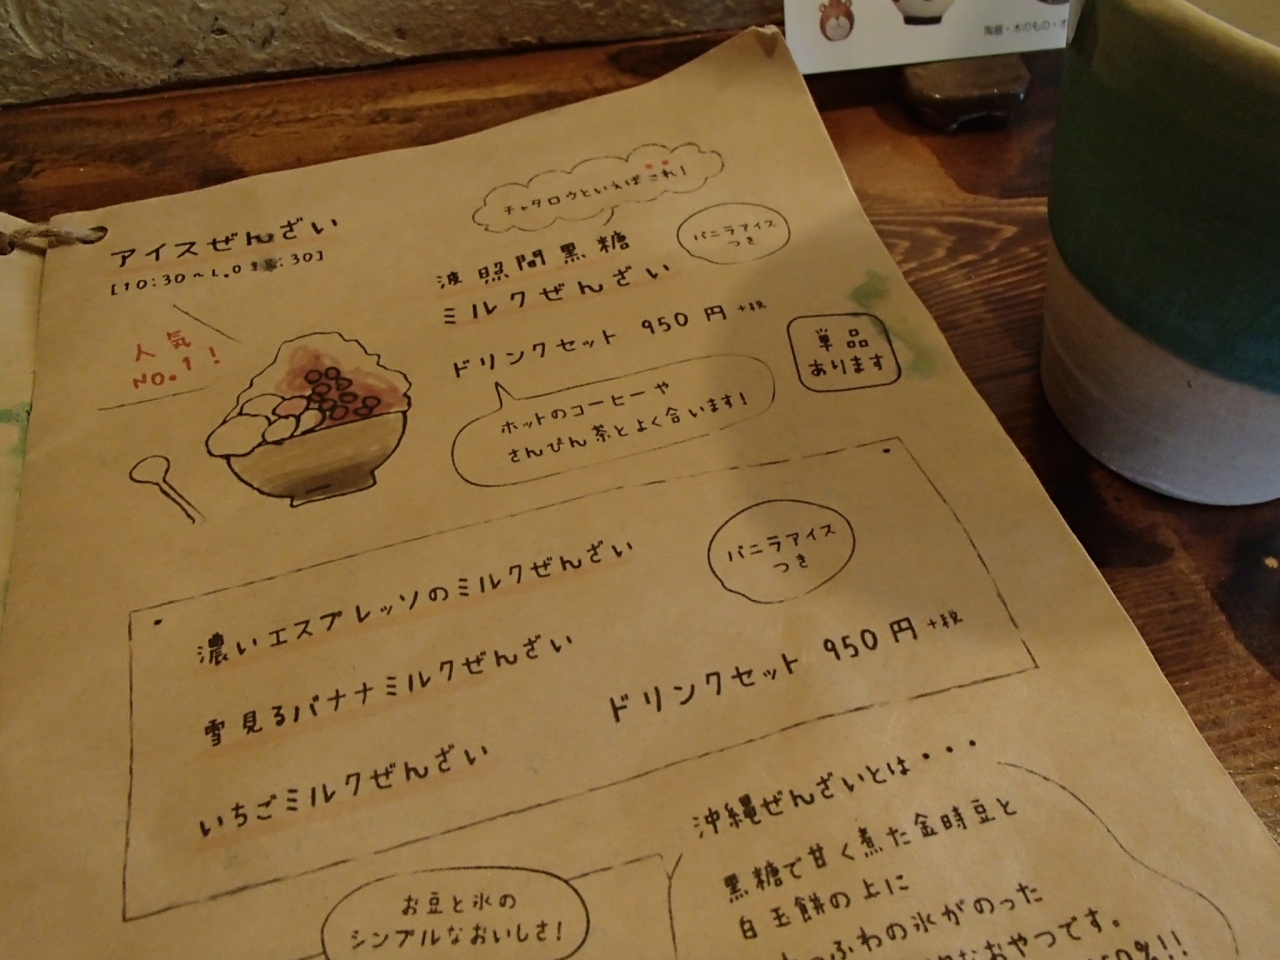 陶器・木のもの・オ
アイスぜんざい
[10:30～L.O :30]
人気
No.1!
チャタロウといえば これ!
波照間黒糖
ミルクぜんざい
バニラアイス
つき
ドリンクセット 950円+税
単品
あります
ホットのコーヒーや
さんぴん茶とよく合います!
濃いエスプレッソのミルクぜんざい
バニラアイス
つき
雪見るバナナミルクぜんざい
ドリンクセット 950円+税
いちごミルクぜんざい
お豆と氷の
シンプルなおいしさ!
沖縄ぜんざいとは・・・
黒糖で甘く煮た金時豆と
白玉餅の上に
ふわの氷がのった
なおやつです。